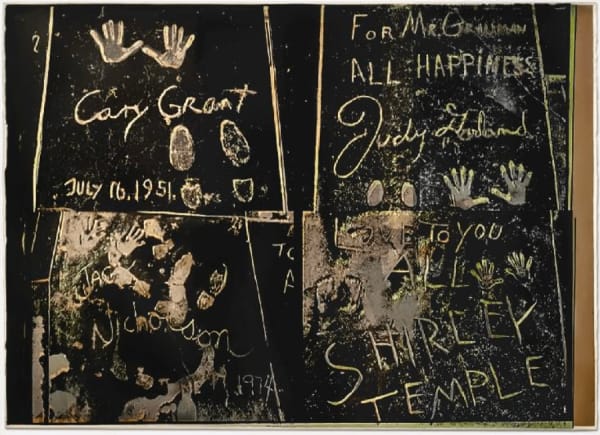 Cary Grant
JULY 16.1951.
FOR MR. GRAUMAN
ALL HAPPINESS
Judy Garland
JACK
Nicholson
1974
LOVE TO YOU
ALL
SHIRLEY
TEMPLE